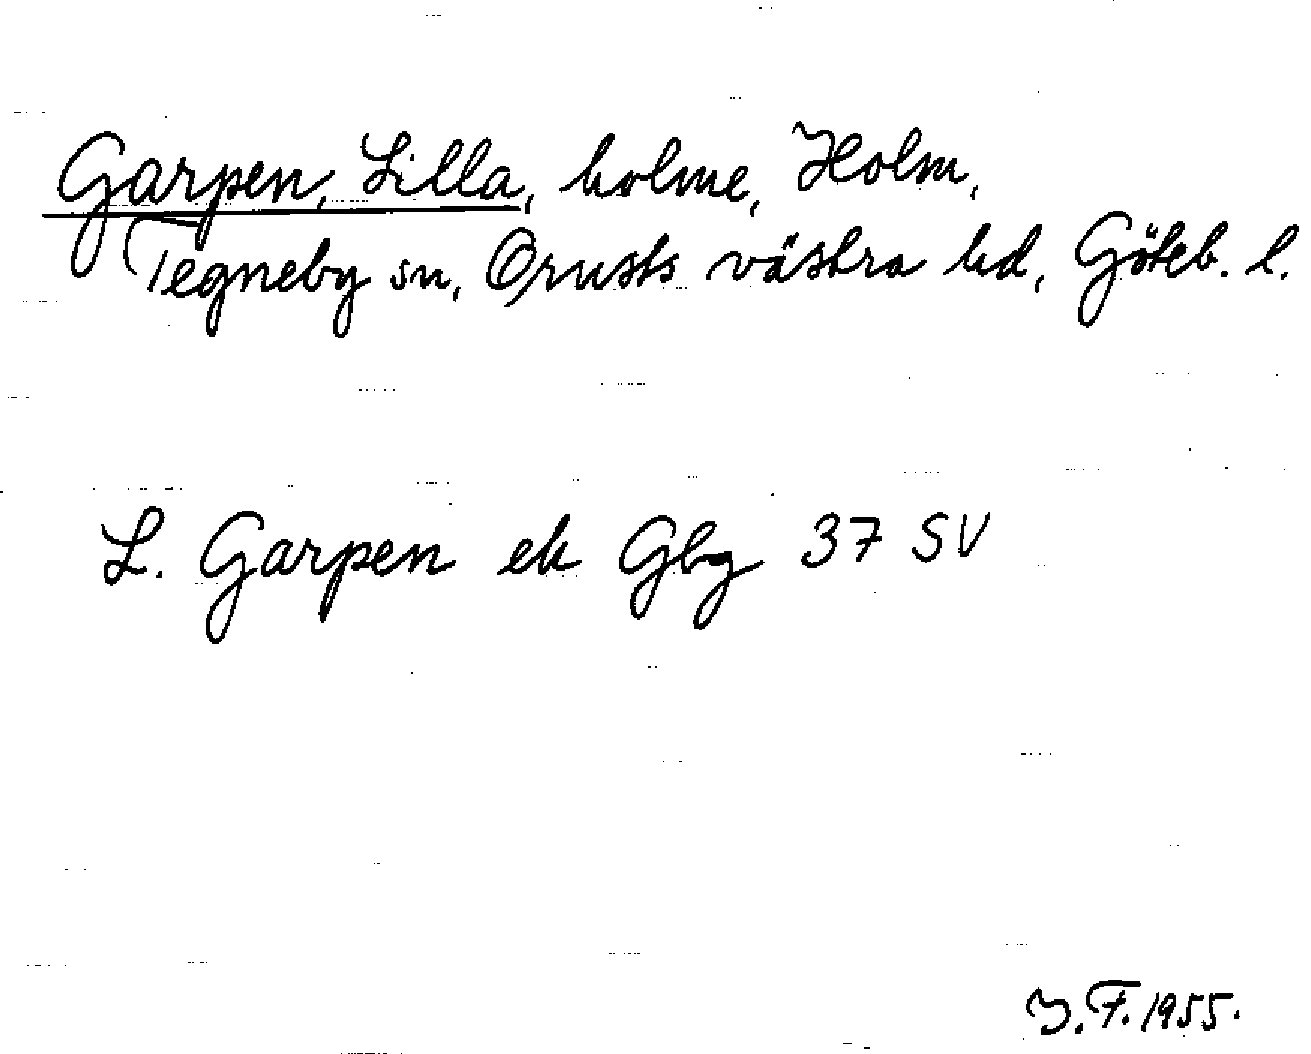 Garpen, Lilla, holme, Holm,
Tegneby sn, Orusts västra hd, Göteb. l.
L. Garpen ek Gbg 37 SV
J. F. 1955.